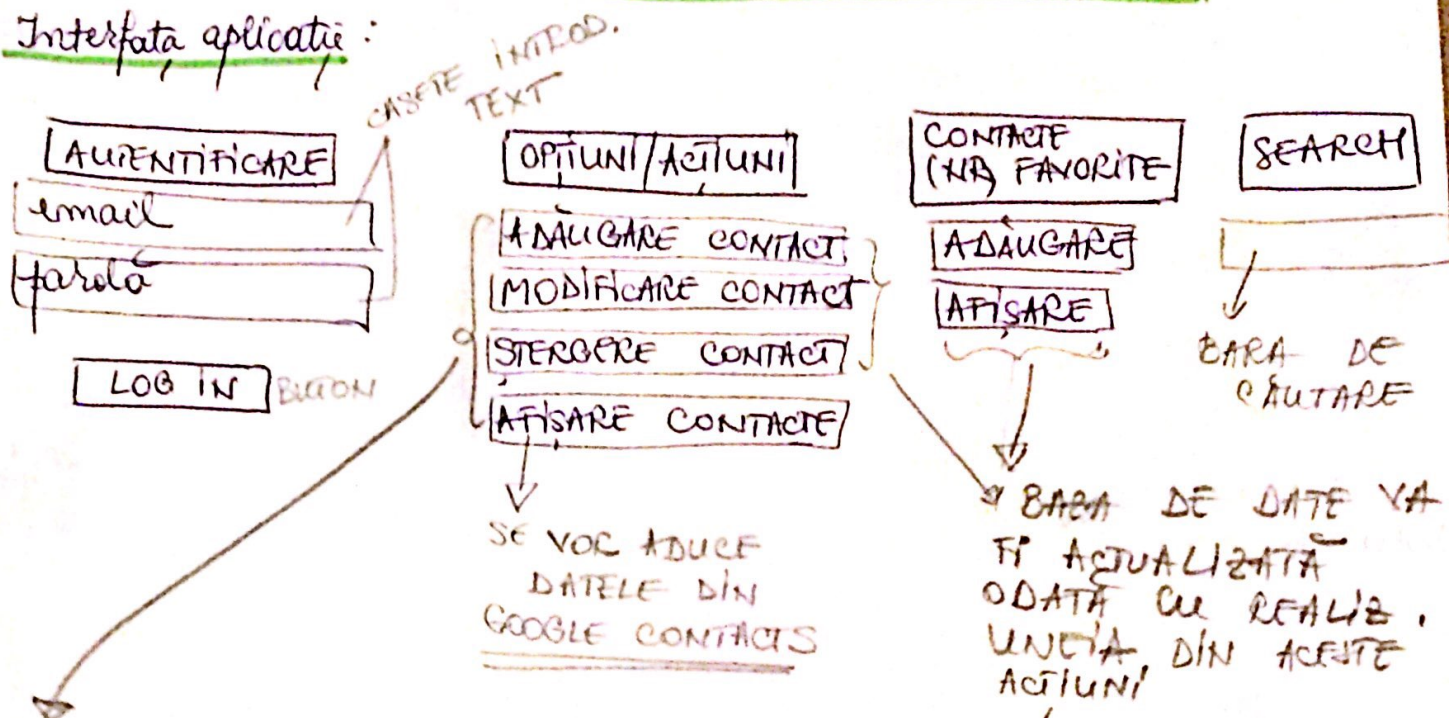 Interfața aplicației:
CASETE INTROD.
TEXT
AUTENTIFICARE
email
parolă
LOG IN BUTON
OPȚIUNI/ACȚIUNI
ADĂUGARE CONTACT
MODIFICARE CONTACT
ȘTERGERE CONTACT
AFIȘARE CONTACTE
SE VOR ADUCE
DATELE DIN
GOOGLE CONTACTS
CONTACTE
FAVORITE
ADĂUGARE
AFIȘARE
BAZA DE DATE VA
FI ACTUALIZATĂ
ODATĂ CU REALIZ.
UNEIA DIN ACESTE
ACȚIUNI
SEARCH
BARA DE
CĂUTARE